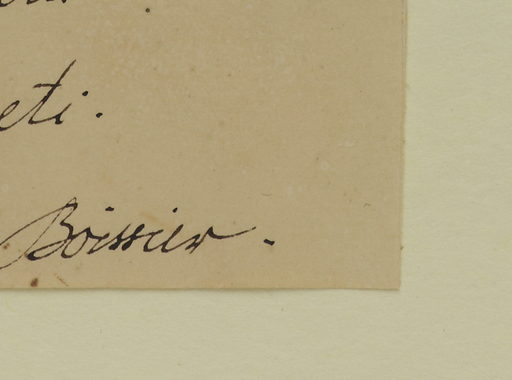 eti.
Boissier.